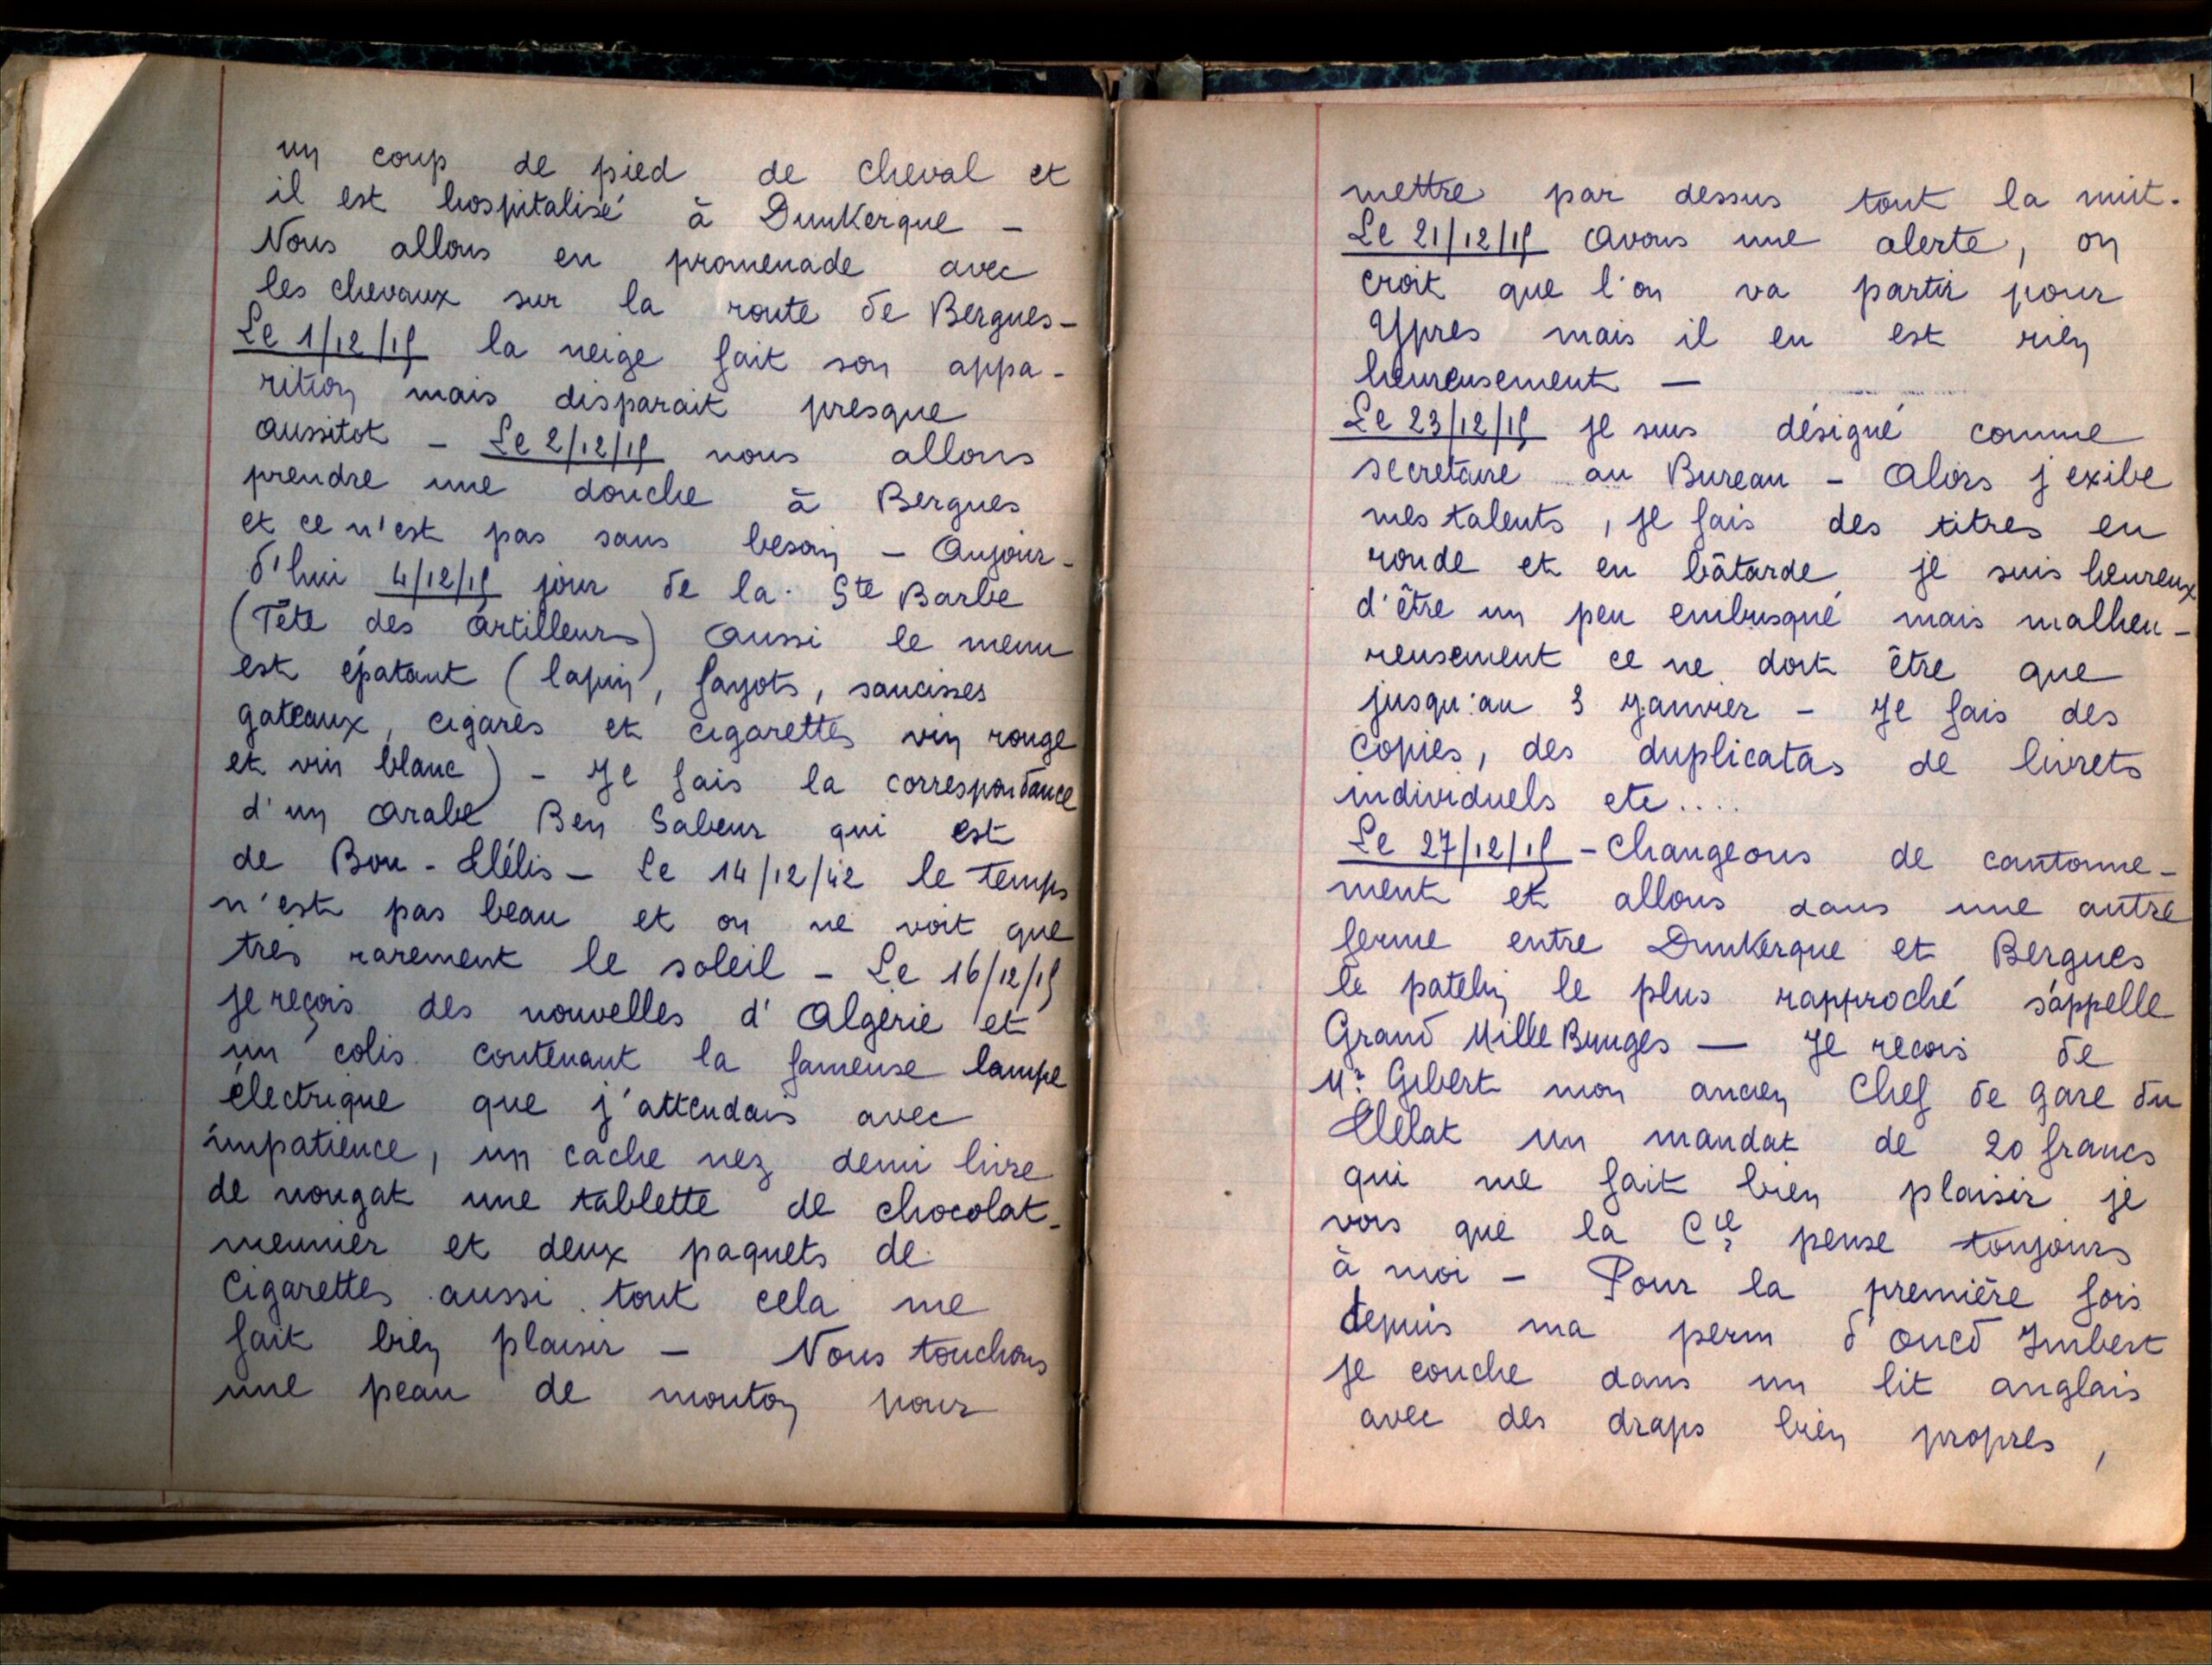 un coup de pied de cheval et
il est hospitalisé à Dunkerque -
Nous allons en promenade avec
les chevaux sur la route de Bergues -
Le 1/12/15 la neige fait son appa-
rition mais disparait presque
aussitot - Le 2/12/15 nous allons
prendre une douche à Bergues
et ce n'est pas sans besoin - Aujour-
d'hui 4/12/15 jour de la Ste Barbe
(Fête des Artilleurs) aussi le menu
est épatant (lapin, fayots, saucisses
gateaux, cigares et cigarettes vin rouge
et vin blanc) - Je fais la correspondance
d'un arabe Ben Sabeur qui est
de Bou-Tlélis - Le 14/12/42 le temps
n'est pas beau et on ne voit que
très rarement le soleil - Le 16/12/15
je reçois des nouvelles d'Algérie et
un colis contenant la fameuse lampe
électrique que j'attendais avec
impatience, un cache nez demi livre
de nougat une tablette de chocolat-
meunier et deux paquets de
cigarettes aussi tout cela me
fait bien plaisir - Nous touchons
une peau de mouton pour
mettre par dessus tout la nuit.
Le 21/12/15 avons une alerte, on
croit que l'on va partir pour
Ypres mais il en est rien
heureusement —
Le 23/12/15 je suis désigné comme
secretaire au Bureau - Alors j'exibe
mes talents, je fais des titres en
ronde et en bâtarde je suis heureux
d'être un peu embusqué mais malheu-
reusement ce ne doit être que
jusqu'au 3 Janvier - Je fais des
copies, des duplicatas de livrets
individuels etc....
Le 27/12/15 - Changeons de cantonne-
ment et allons dans une autre
ferme entre Dunkerque et Bergues
le patelin le plus rapproché s'appelle
Grand Mille Bruges — Je recois de
Mr Gibert mon ancien Chef de gare du
Tlélat un mandat de 20 francs
qui me fait bien plaisir je
vois que la Cie pense toujours
à moi - Pour la première fois
depuis ma perm d'oued Imbert
je couche dans un lit anglais
avec des draps bien propres,